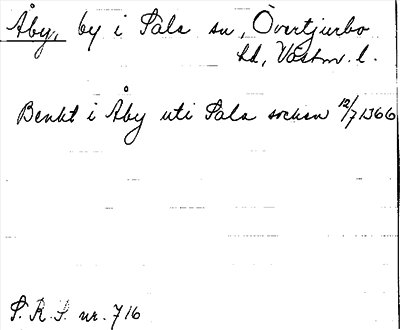 Åby, by i Sala sn, Övertjurbo
hd, Västm. l.
Benkt i Åby uti Sala socken 12/7 1366
S. R. S. nr. 716